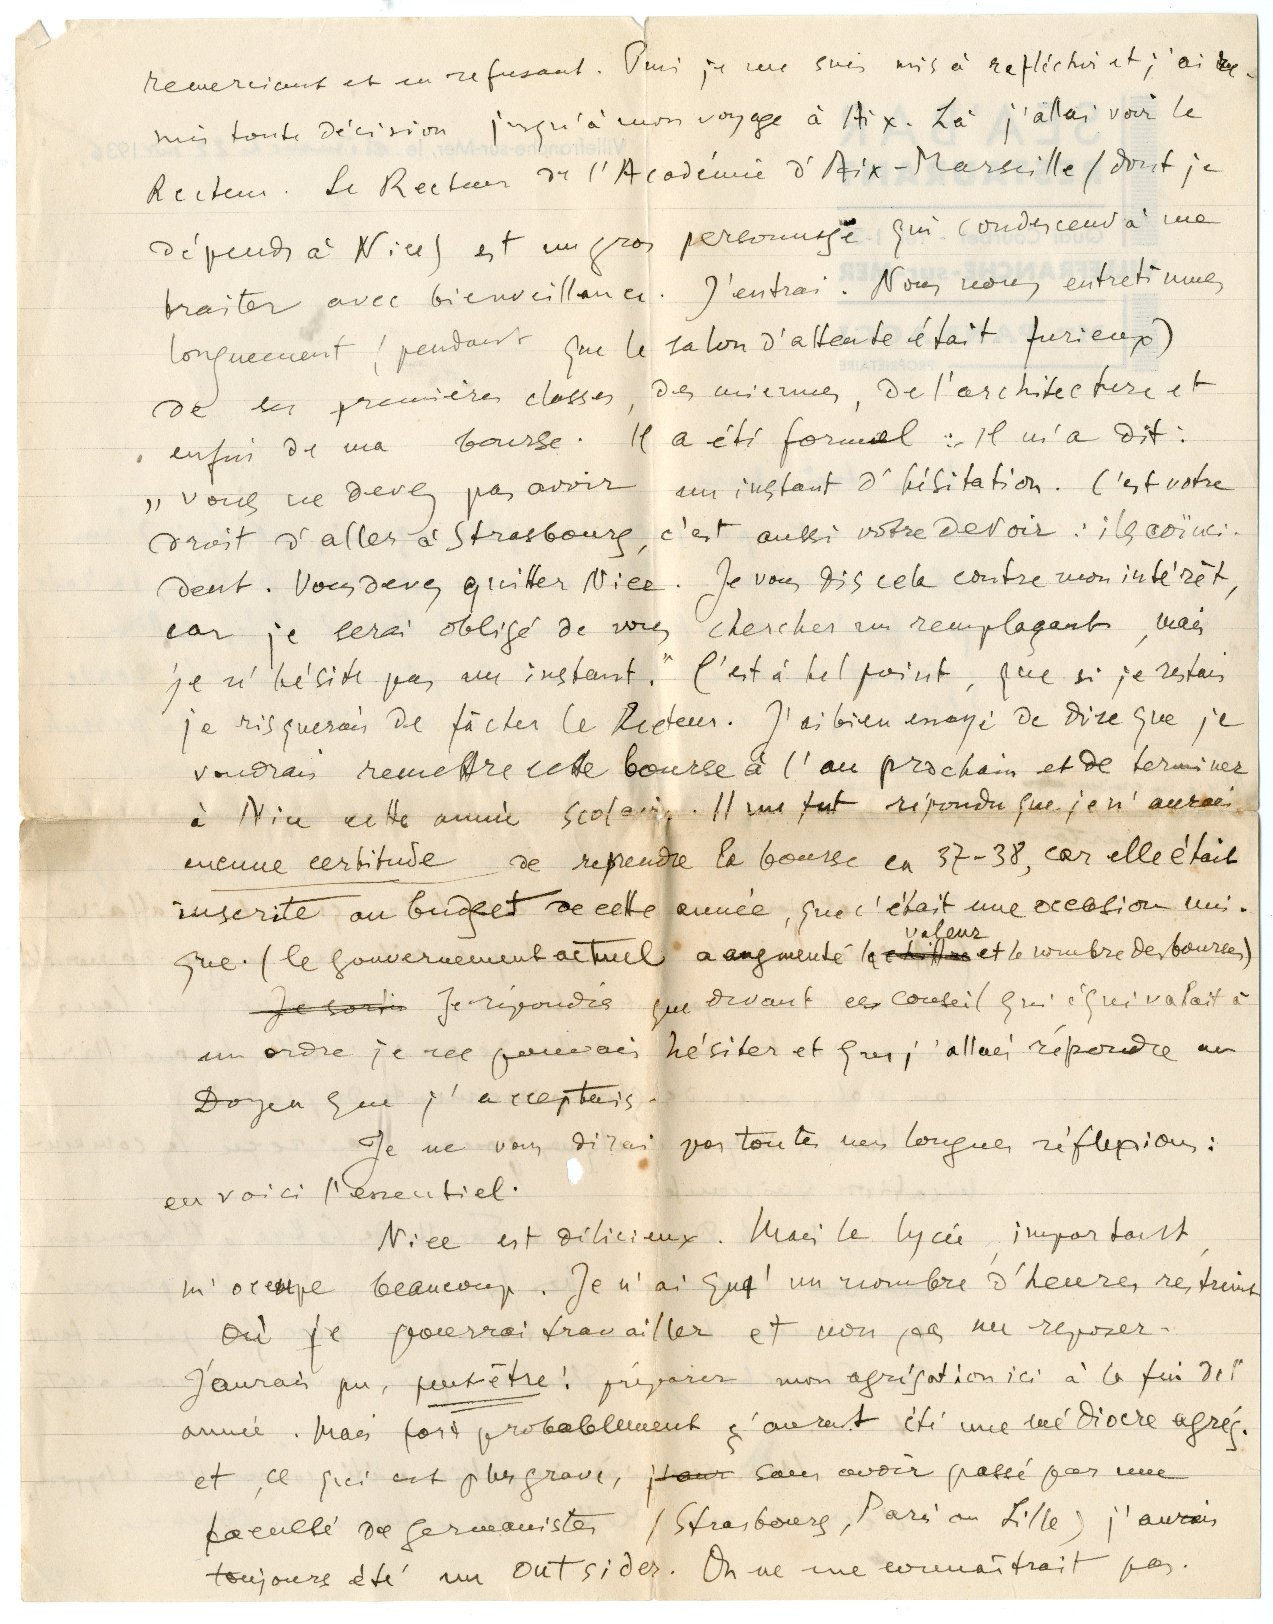 remerciant et en refusant. Puis je me suis mis à réfléchir et j'ai re-
mis toute décision jusqu'à mon voyage à Aix. Là j'allai voir le
Recteur. Le Recteur de l'Académie d'Aix-Marseille (dont je
dépends à Nice) est un gros personnage qui condescend à me
traiter avec bienveillance. J'entrai. Nous nous entretînmes
longuement (pendant que le salon d'attente était furieux)
de ses premières classes, des miennes, de l'architecture et
enfin de ma bourse. Il a été formel : Il m'a dit :
„ vous ne devez pas avoir un instant d'hésitation. C'est votre
droit d'aller à Strasbourg, c'est aussi votre devoir : ils coïnci-
dent. Vous devez quitter Nice. Je vous dis cela contre mon intérêt,
car je serai obligé de vous chercher un remplaçant, mais
je n'hésite pas un instant." C'est à tel point, que si je restais
je risquerais de fâcher le Recteur. J'ai bien essayé de dire que je
voudrais remettre cette bourse à l'an prochain et de terminer
à Nice cette année scolaire. Il me fut répondu que je n'aurais
aucune certitude de reprendre la bourse en 37-38, car elle était
inscrite au budget de cette année, que c'était une occasion uni-
que. (le gouvernement actuel a augmenté la chiffre valeur et le nombre des bourses)
Je sortis Je répondis que devant ce conseil qui équivalait à
un ordre je ne pouvais hésiter et que j'allais répondre au
Doyen que j'acceptais.
Je ne vous dirai pas toutes mes longues réflexions :
en voici l'essentiel.
Nice est délicieux. Mais le lycée, important,
m'occupe beaucoup. Je n'ai qu'un nombre d'heures restreint
où je pourrai travailler et non pas me reposer.
J'aurais pu, peut-être ! préparer mon agrégation ici à la fin de l'
année. Mais fort probablement ç'aurait été une médiocre agrég.
et, ce qui est plus grave, sans avoir passé par une
faculté de germanistes (Strasbourg, Paris ou Lille) j'aurais
toujours été un outsider. On ne me connaîtrait pas.